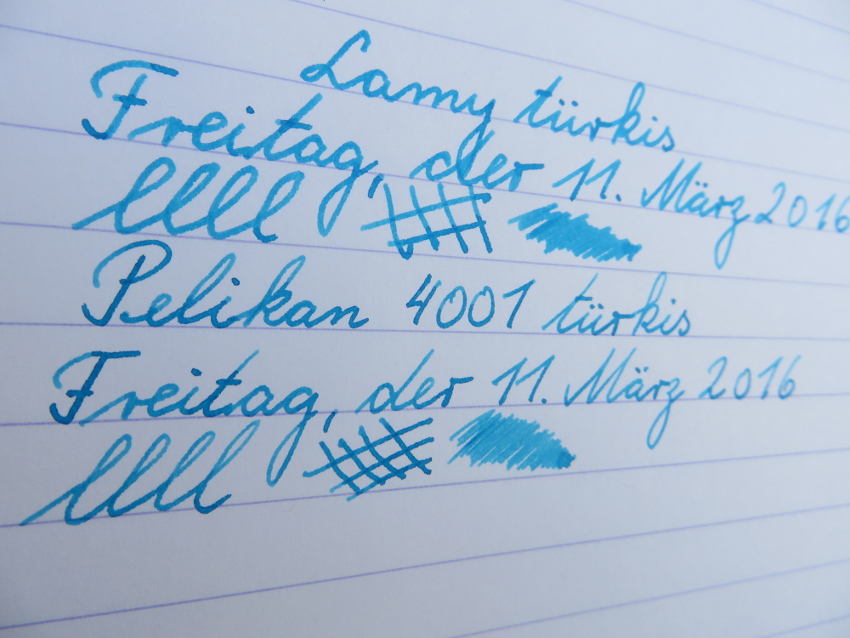 Lamy türkis
Freitag, der 11. März 2016
llll
Pelikan 4001 türkis
Freitag, der 11. März 2016
llll